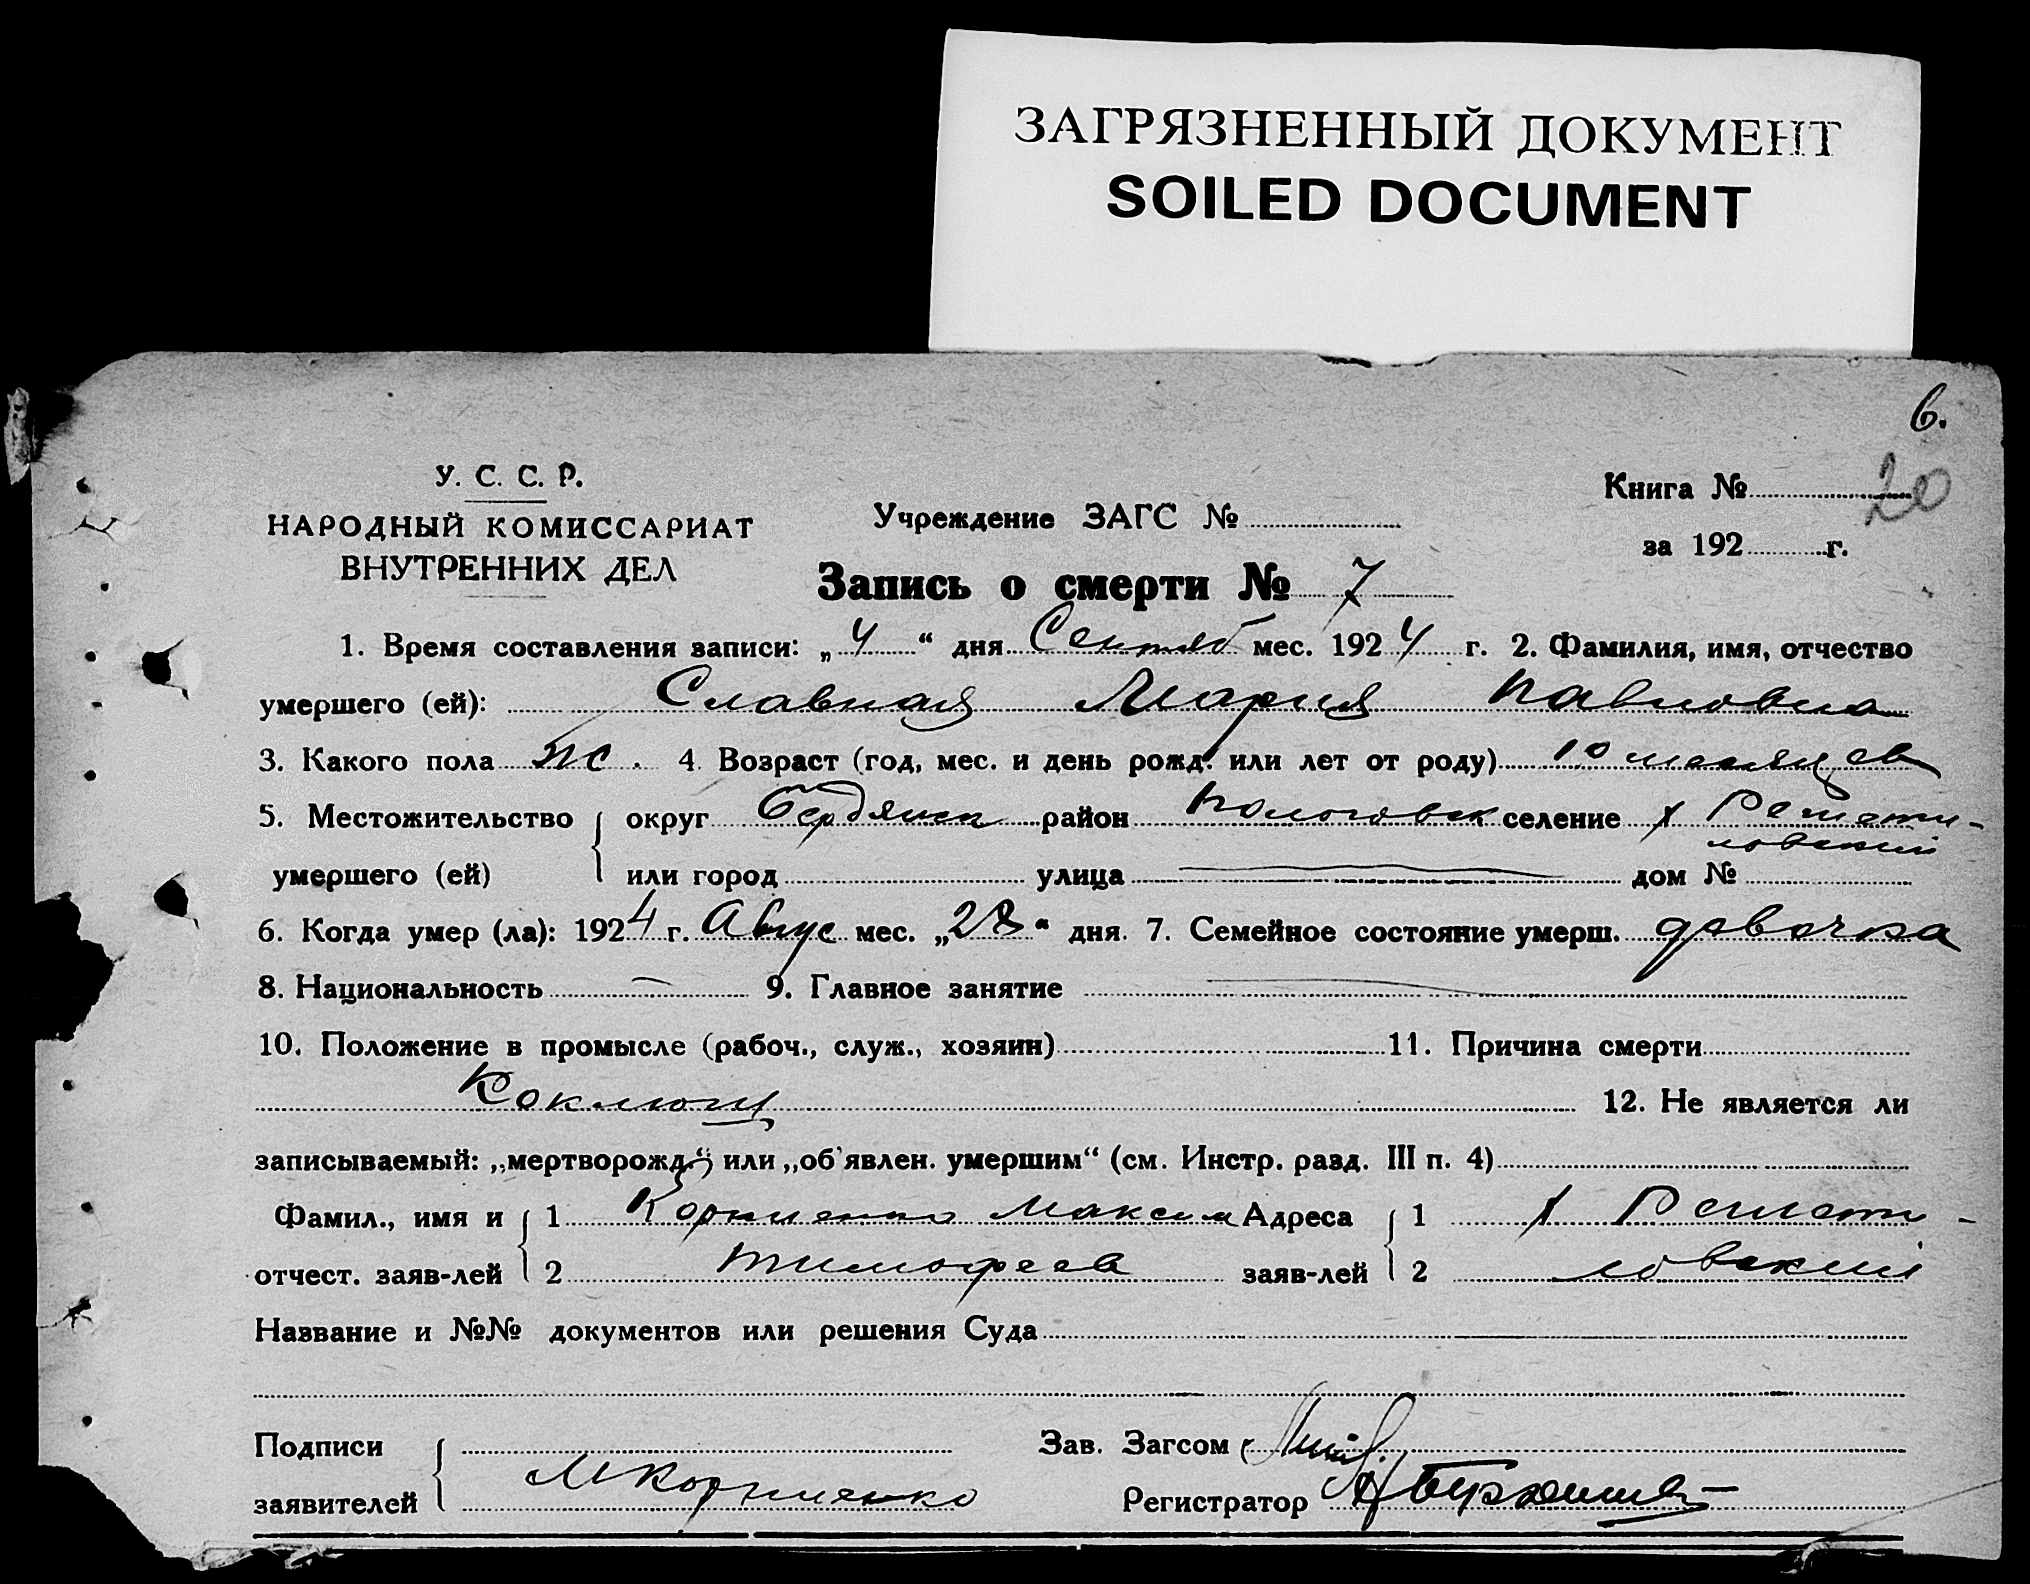 ЗАГРЯЗНЕННЫЙ ДОКУМЕНТ
SOILED DOCUMENT
6.
20
У. С. С. Р.
НАРОДНЫЙ КОМИССАРИАТ
ВНУТРЕННИХ ДЕЛ
Учреждение ЗАГС №
Книга №
за 192 г.
Запись о смерти № 7
1. Время составления записи: „4“ дня Сентяб мес. 1924 г. 2. Фамилия, имя, отчество
умершего (ей): Славная Мария Павловна
3. Какого пола ж. 4. Возраст (год, мес. и день рожд. или лет от роду) 10 месяцев
5. Местожительство округ Бердянск район Пологовск селение х Решети-
ловский
умершего (ей) или город улица дом №
6. Когда умер (ла): 1924 г. Авгус мес. „28“ дня. 7. Семейное состояние умерш. девочка
8. Национальность 9. Главное занятие
10. Положение в промысле (рабоч., служ., хозяин) 11. Причина смерти
Коклющ 12. Не является ли
записываемый: „мертворожд.“ или „об'явлен. умершим“ (см. Инстр. разд. III п. 4)
Фамил., имя и 1 Корниенко Максим Адреса 1 х Решети-
отчест. заяв-лей 2 Тимофеев заяв-лей 2 ловский
Название и №№ документов или решения Суда
Подписи Зав. Загсом
заявителей МКорниенко Регистратор